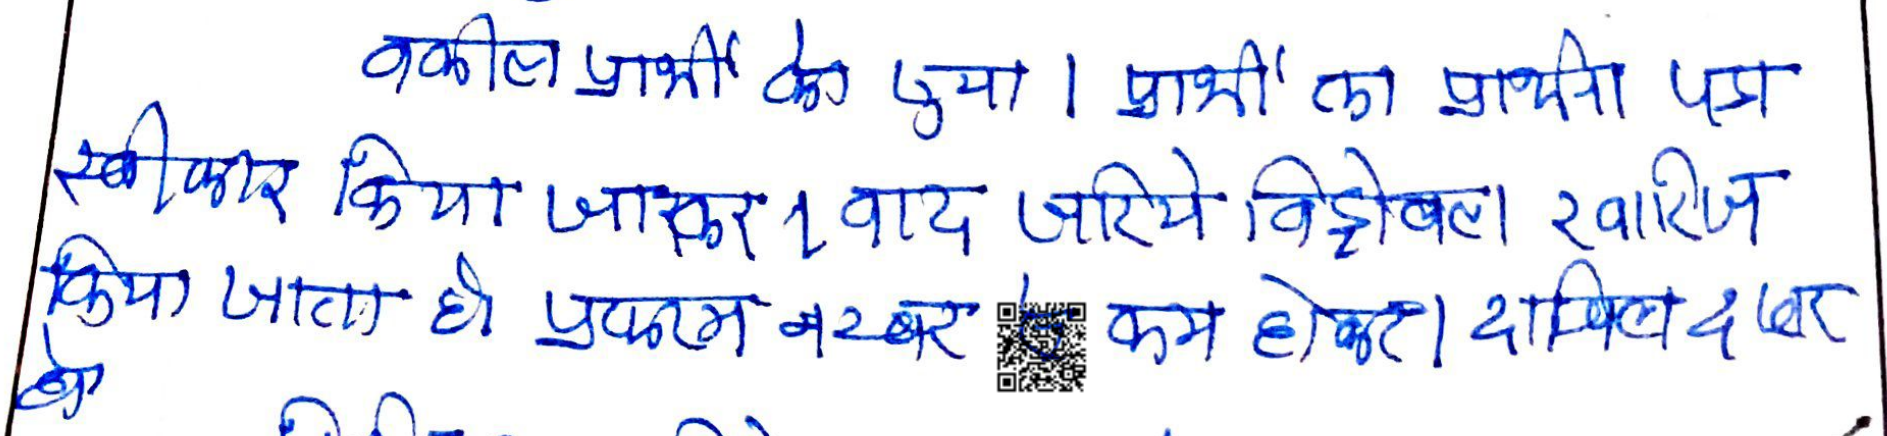 वकील प्रार्थी को सुना । प्रार्थी का प्रार्थना पत्र
स्वीकार किया जाकर वाद जरिये विड्रोवल खारिज
किया जाता है। प्रकरण नम्बर से कम होकर दाखिल दफ्तर
हो